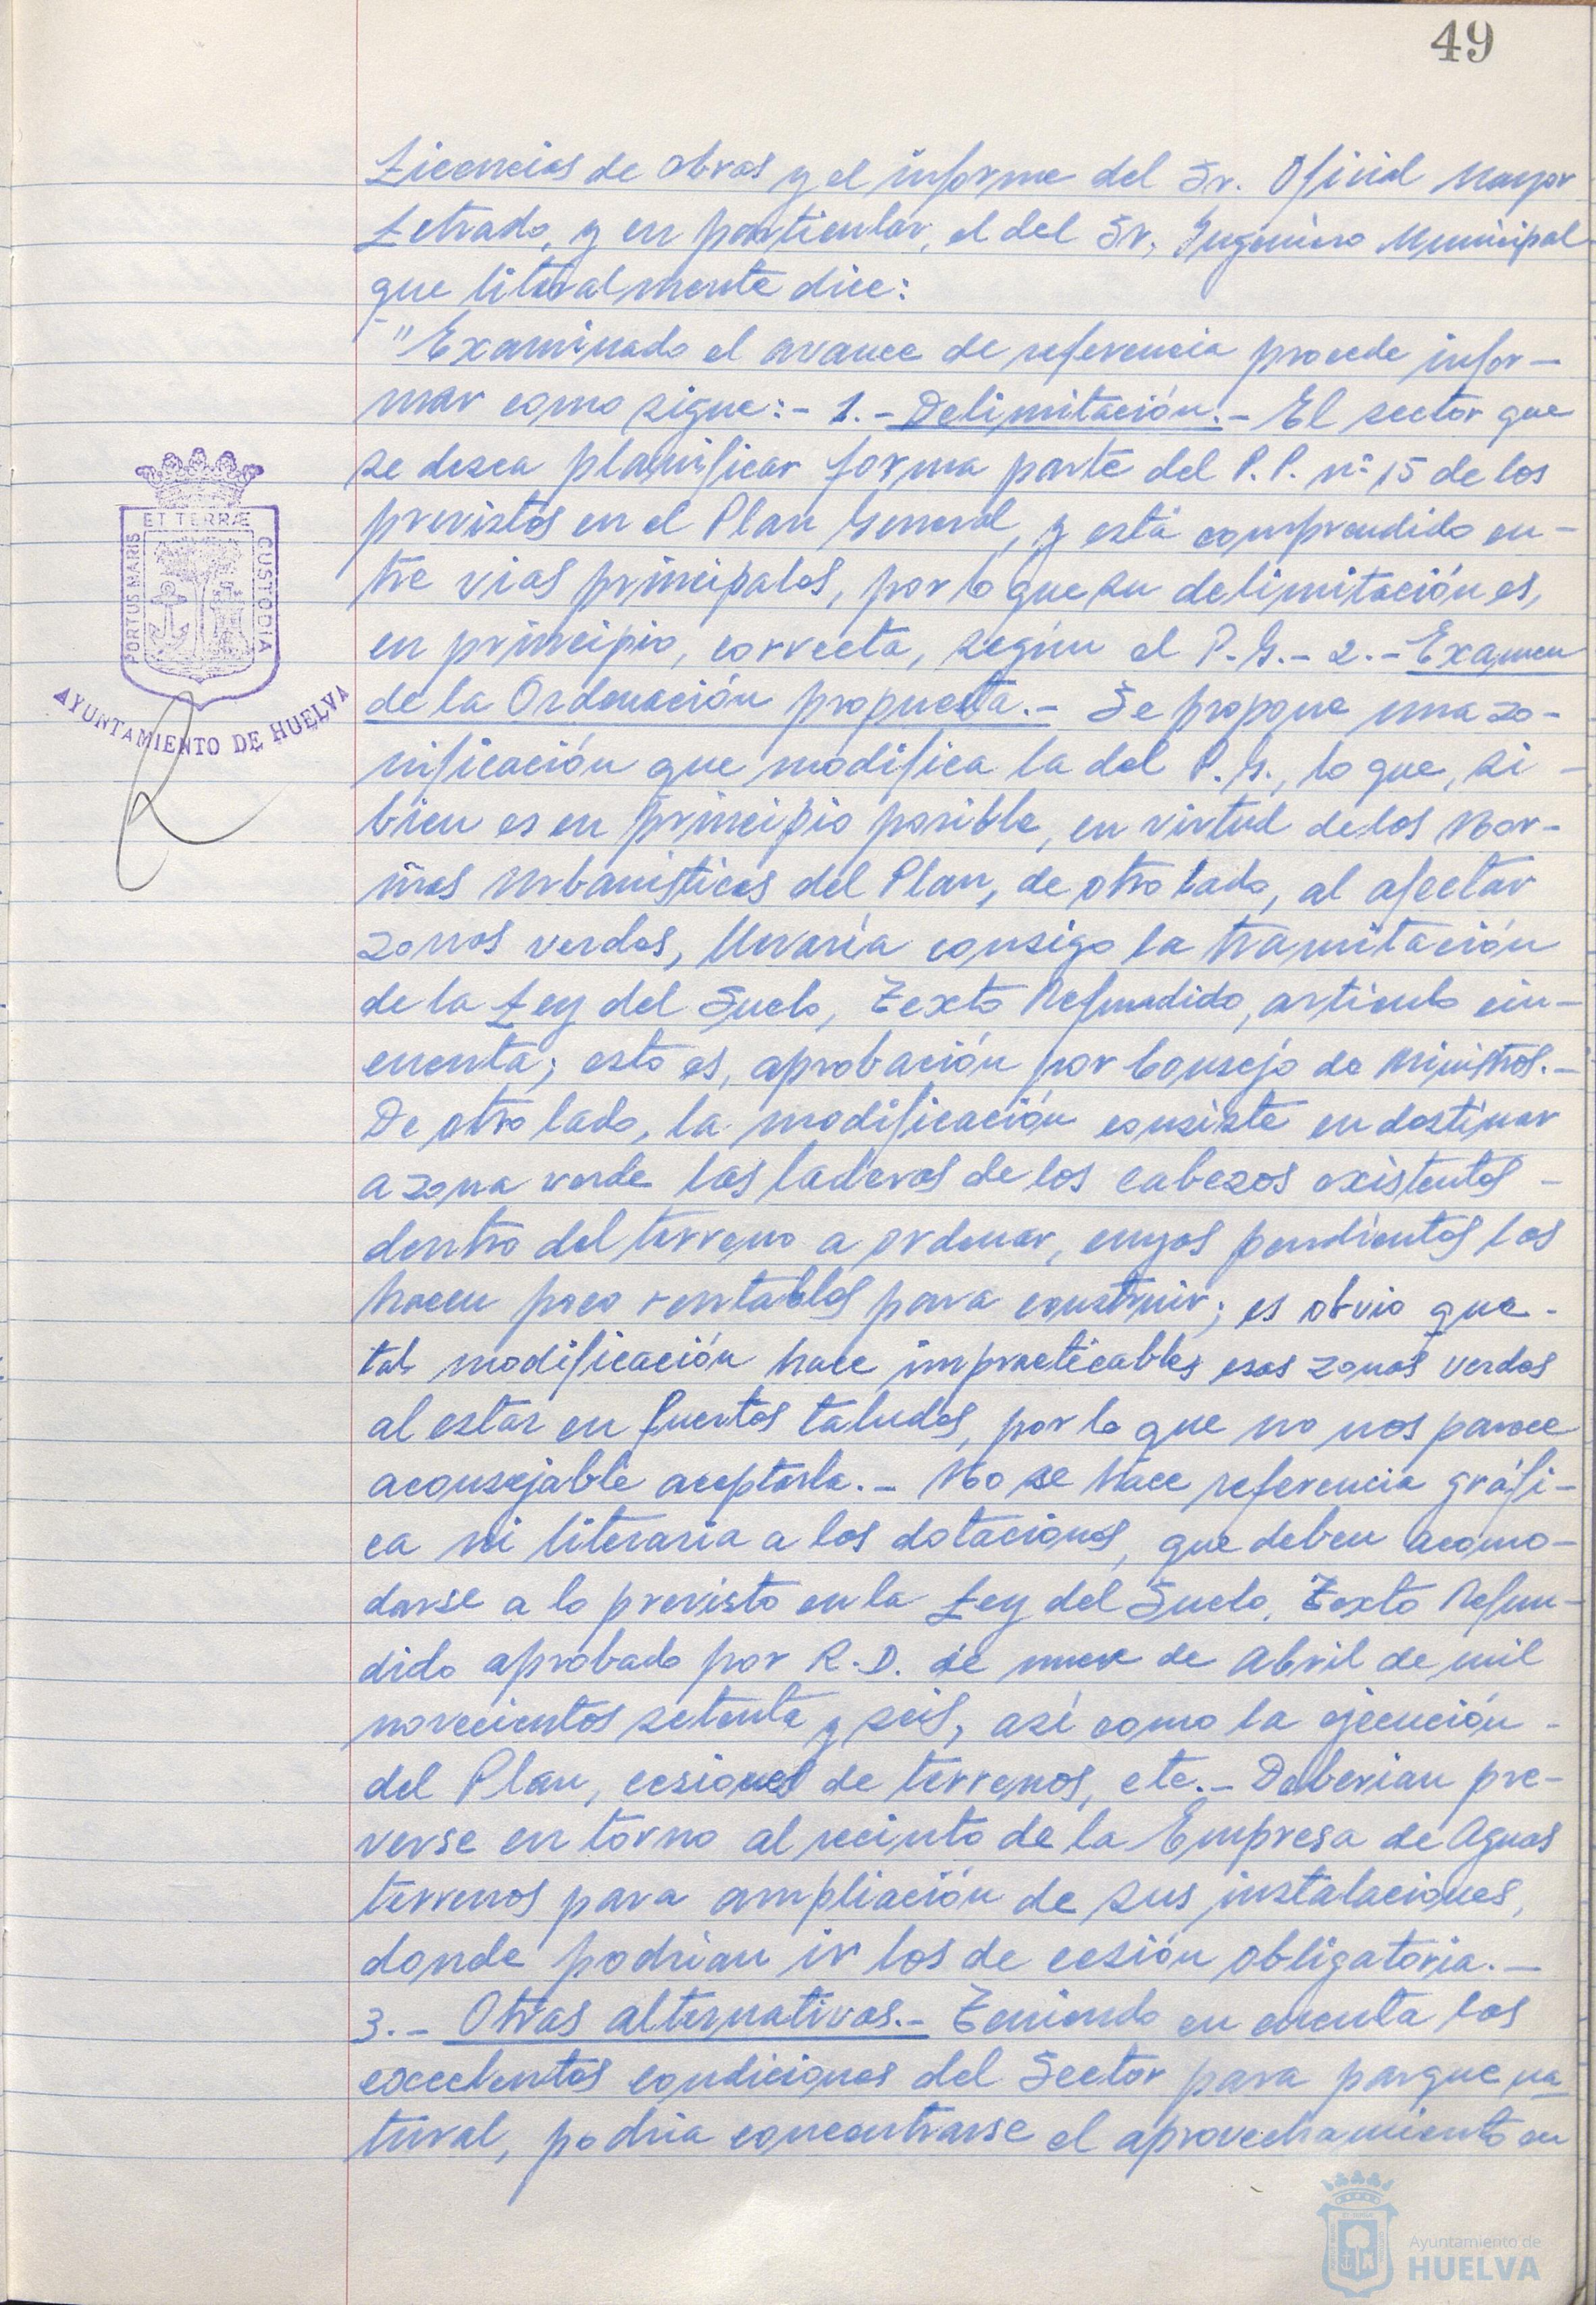 49
Licencias de obras y el informe del Sr. Oficial Mayor
Letrado, y en particular, el del Sr. Ingeniero Municipal
que literalmente dice:
"Examinado el avance de referencia procede infor-
mar como sigue:- 1.- Delimitación.- El sector que
se desea planificar forma parte del P.P. nº 15 de los
previstos en el Plan General, y está comprendido en-
tre vias principales, por lo que su delimitación es,
en principio, correcta, según el P.G.- 2.- Examen
de la Ordenación propuesta.- Se propone una zo-
nificación que modifica la del P.G., lo que, si -
bien es en principio posible, en virtud de las Nor-
mas Urbanísticas del Plan, de otro lado, al afectar
zonas verdes, llevaría consigo la tramitación
de la Ley del Suelo, Texto Refundido, artículo cin-
cuenta; esto es, aprobación por Consejo de Ministros.-
De otro lado, la modificación consiste en destinar
a zona verde las laderas de los cabezos existentes -
dentro del terreno a ordenar, cuyas pendientes las
hacen poco rentables para construir; es obvio que -
tal modificación hace impracticables esas zonas verdes
al estar en fuertes taludes, por lo que no nos parece
aconsejable aceptarla.- No se hace referencia gráfi-
ca ni literaria a las dotaciones, que deben acomo-
darse a lo previsto en la Ley del Suelo, Texto Refun-
dido aprobado por R.D. de nueve de Abril de mil
novecientos setenta y seis, así como la ejecución -
del Plan, cesiones de terrenos, etc.- Deberian pre-
verse en torno al recinto de la Empresa de Aguas
terrenos para ampliación de sus instalaciones,
donde podrian ir los de cesión obligatoria.-
3.- Otras alternativas.- Teniendo en cuenta las
excelentes condiciones del Sector para parque na
tural, podria concentrarse el aprovechamiento en
PORTUS MARIS
ET TERRÆ
CUSTODIA
AYUNTAMIENTO DE HUELVA
Ayuntamiento de
HUELVA